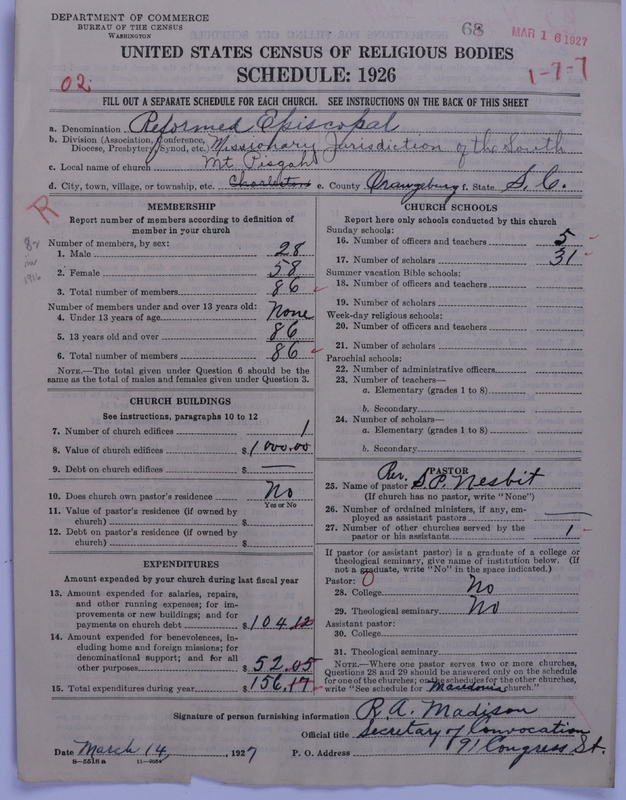 DEPARTMENT OF COMMERCE
BUREAU OF THE CENSUS
WASHINGTON
68
MAR 16 1927
UNITED STATES CENSUS OF RELIGIOUS BODIES
SCHEDULE: 1926
02.
1-7-7
FILL OUT A SEPARATE SCHEDULE FOR EACH CHURCH. SEE INSTRUCTIONS ON THE BACK OF THIS SHEET
a. Denomination Reformed Episcopal
b. Division (Association, Conference, Diocese, Presbytery, Synod, etc.) Missionary Jurisdiction of the South
c. Local name of church Mt Pisgah
d. City, town, village, or township, etc. Charleston e. County Orangeburg f. State S. C.
R
MEMBERSHIP
Report number of members according to definition of
member in your church
Number of members, by sex:
1. Male 28
2. Female 58
3. Total number of members 86
Number of members under and over 13 years old:
4. Under 13 years of age None
5. 13 years old and over 86
6. Total number of members 86
NOTE.—The total given under Question 6 should be the
same as the total of males and females given under Question 3.
CHURCH BUILDINGS
See instructions, paragraphs 10 to 12
7. Number of church edifices 1
8. Value of church edifices $1000.00
9. Debt on church edifices $ —
10. Does church own pastor's residence No
Yes or No
11. Value of pastor's residence (if owned by
church) $
12. Debt on pastor's residence (if owned by
church) $
EXPENDITURES
Amount expended by your church during last fiscal year
13. Amount expended for salaries, repairs,
and other running expenses; for im-
provements or new buildings; and for
payments on church debt $104.12
14. Amount expended for benevolences, in-
cluding home and foreign missions; for
denominational support; and for all
other purposes $52.05
15. Total expenditures during year $156.17
CHURCH SCHOOLS
Report here only schools conducted by this church
Sunday schools:
16. Number of officers and teachers 5
17. Number of scholars 31
Summer vacation Bible schools:
18. Number of officers and teachers
19. Number of scholars
Week-day religious schools:
20. Number of officers and teachers
21. Number of scholars
Parochial schools:
22. Number of administrative officers
23. Number of teachers—
a. Elementary (grades 1 to 8)
b. Secondary
24. Number of scholars—
a. Elementary (grades 1 to 8)
b. Secondary
PASTOR
25. Name of pastor Rev. S.P. Nesbit
(If church has no pastor, write "None")
26. Number of ordained ministers, if any, em-
ployed as assistant pastors —
27. Number of other churches served by the
pastor or his assistants 1
If pastor (or assistant pastor) is a graduate of a college or
theological seminary, give name of institution below. (If
not a graduate, write "No" in the space indicated.)
Pastor: 0
28. College No
29. Theological seminary No
Assistant pastor:
30. College
31. Theological seminary
NOTE.—Where one pastor serves two or more churches,
Questions 28 and 29 should be answered only on the schedule
for one of the churches; on the schedules for the other churches,
write "See schedule for Macedonia church."
Signature of person furnishing information R. A. Madison
Official title Secretary of Convocation
Date March 14, 1927 P. O. Address 91 Congress St.
8-5516 a 11-9054